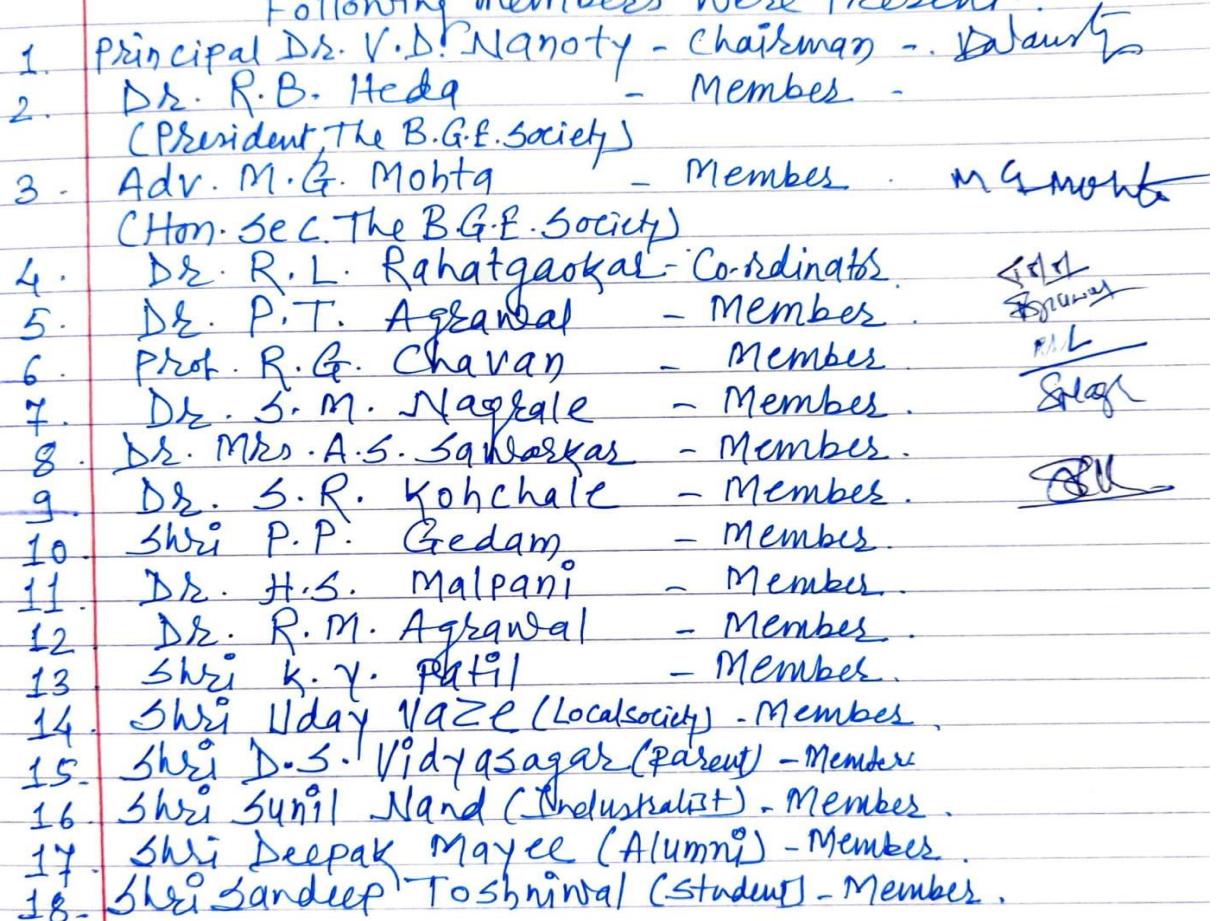 Following members were Present.
1. Principal Dr. V.D. Nanoty - Chairman -.
2. Dr. R.B. Heda - Member -
(President, The B.G.E. Society)
3. Adv. M.G. Mohta - Member. M G Mohta
(Hon. Sec. The B.G.E. Society)
4. Dr. R.L. Rahatgaokar - Co-ordinator.
5. Dr. P.T. Agrawal - Member.
6. Prof. R.G. Chavan - Member.
7. Dr. S.M. Nagrale - Member.
8. Dr. Mrs. A.S. Sawarkar - Member.
9. Dr. S.R. Kohchale - Member.
10. Shri P.P. Gedam - Member.
11. Dr. H.S. Malpani - Member.
12. Dr. R.M. Agrawal - Member.
13. Shri K.Y. Patil - Member.
14. Shri Uday Vaze (Local society) - Member.
15. Shri D.S. Vidyasagar (Parent) - Member
16. Shri Sunil Nand (Industralist) - Member.
17. Shri Deepak Mayee (Alumni) - Member.
18. Shri Sandeep Toshniwal (Student) - Member.